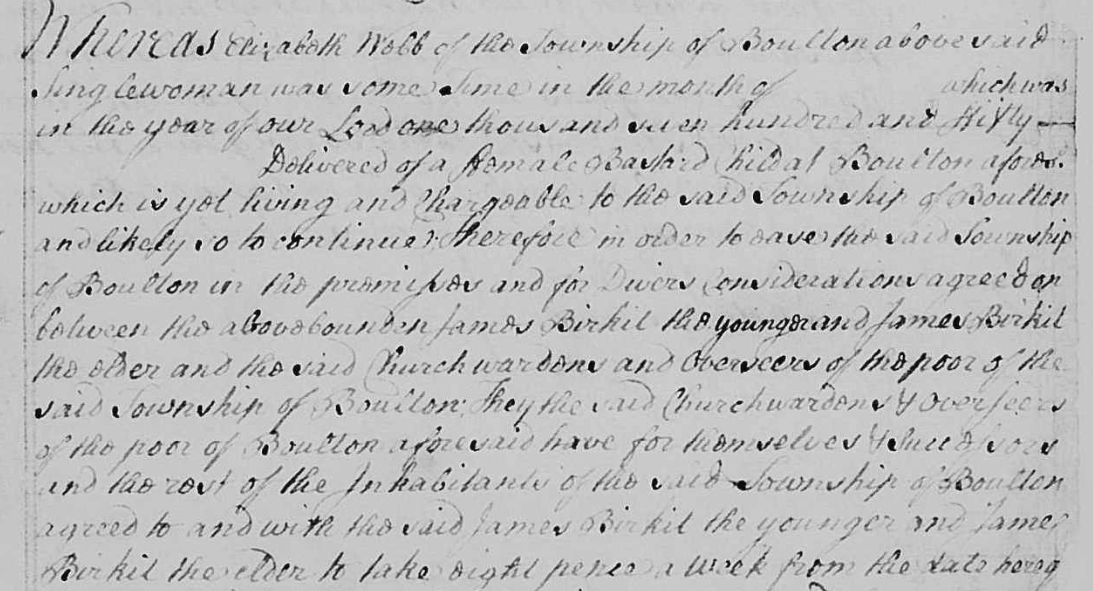 Whereas Elizabeth Webb of the Township of Boulton abovesaid
Singlewoman was some Time in the month of which was
in the year of our Lord one thousand seven hundred and Fifty
Delivered of a Female Bastard Child at Boulton afores.
which is yet living and Chargeable to the said Township of Boulton
and likely so to continue: Therefore in order to save the said Township
of Boulton in the premises and for Divers Considerations agreed on
between the abovebounden James Birkit the younger and James Birkit
the elder and the said Churchwardens and Overseers of the poor of the
said Township of Boulton; They the said Churchwardens & Overseers
of the poor of Boulton aforesaid have for themselves & Successors
and the rest of the Inhabitants of the said Township of Boulton
agreed to and with the said James Birkit the younger and James
Birkit the elder to take eight pence a Week from the date hereof